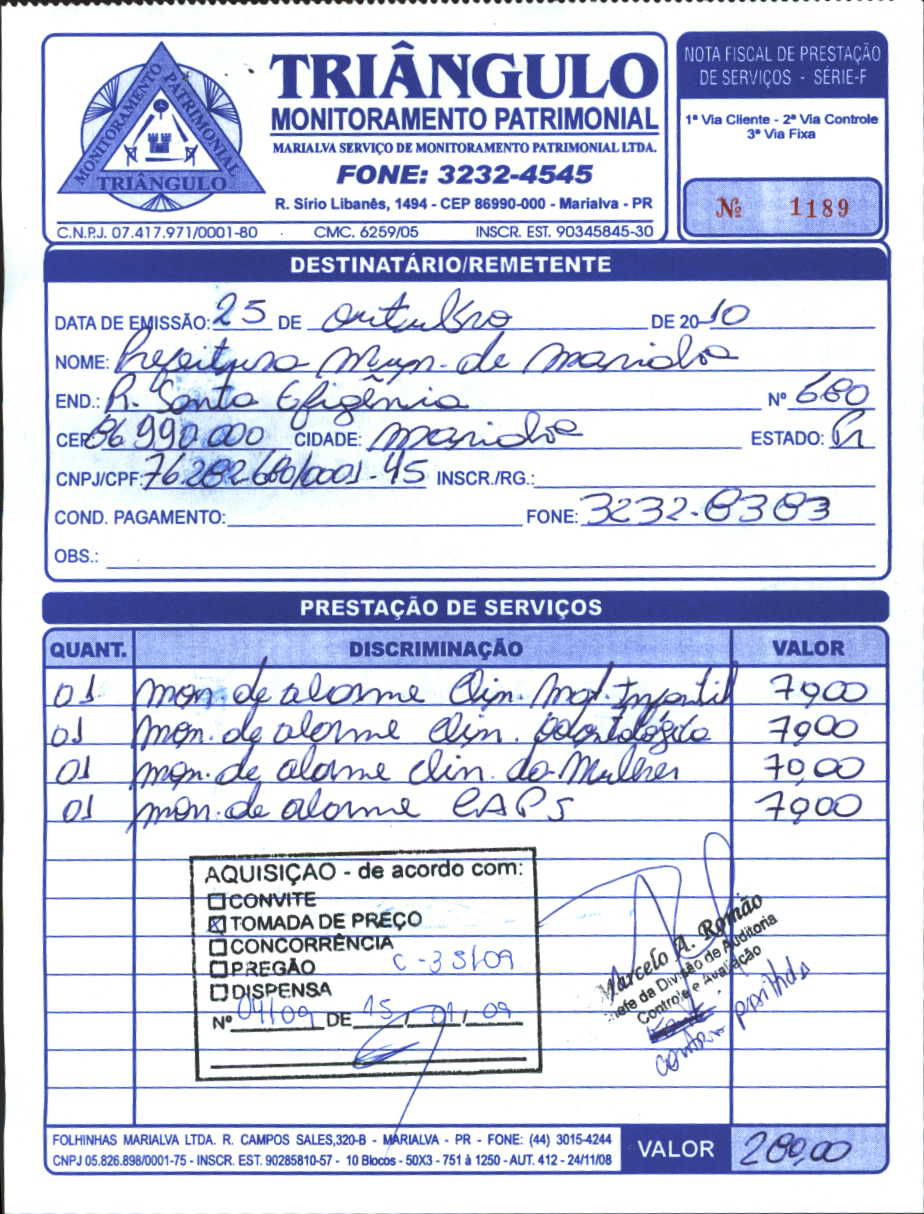 MONITORAMENTO PATRIMONIAL
TRIÂNGULO
TRIÂNGULO
MONITORAMENTO PATRIMONIAL
MARIALVA SERVIÇO DE MONITORAMENTO PATRIMONIAL LTDA.
FONE: 3232-4545
R. Sírio Libanês, 1494 - CEP 86990-000 - Marialva - PR
C.N.P.J. 07.417.971/0001-80 CMC. 6259/05 INSCR. EST. 90345845-30
NOTA FISCAL DE PRESTAÇÃO
DE SERVIÇOS - SÉRIE-F
1ª Via Cliente - 2ª Via Controle
3ª Via Fixa
Nº 1189
DESTINATÁRIO/REMETENTE
DATA DE EMISSÃO: 25 DE outubro DE 2010
NOME: Prefeitura Mun. de Marialva
END.: R. Santa Efigênia Nº 680
CEP: 86990.000 CIDADE: Marialva ESTADO: Pr
CNPJ/CPF: 76.282.680/0001-45 INSCR./RG.:
COND. PAGAMENTO: FONE: 3232-8383
OBS.:
PRESTAÇÃO DE SERVIÇOS
QUANT. DISCRIMINAÇÃO VALOR
01 mon. de alarme Clin. Mat. Infantil 70,00
01 mon. de alarme Clin. Odontológica 70,00
01 mon. de alarme clin. da Mulher 70,00
01 mon. de alarme CAPS 70,00
AQUISIÇÃO - de acordo com:
CONVITE
TOMADA DE PREÇO
CONCORRÊNCIA
PREGÃO C-38/09
DISPENSA
Nº 04/09 DE 15/01/09
Marcelo A. Romão
Chefe da Divisão de Auditoria
Controle e Avaliação
FOLHINHAS MARIALVA LTDA. R. CAMPOS SALES,320-B - MARIALVA - PR - FONE: (44) 3015-4244
CNPJ 05.826.898/0001-75 - INSCR. EST. 90285810-57 - 10 Blocos - 50X3 - 751 à 1250 - AUT. 412 - 24/11/08
VALOR 280,00